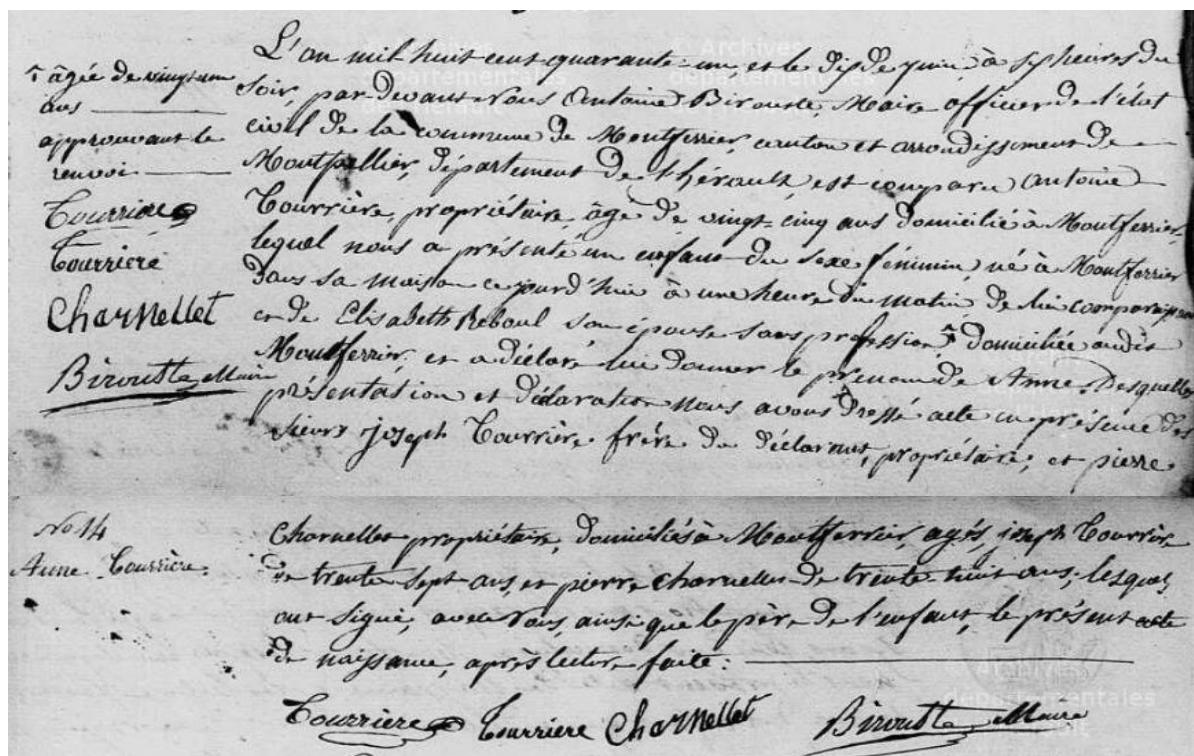 L'an mil huit cent quarante-un et le dix de juin à sept heures du
soir, par devant nous Antoine Birouste, Maire officier de l'état
civil de la commune de Montferrier, canton et arrondissement de
Montpellier, département de l'hérault est comparu Antoine
Tourrière, propriétaire, âgé de vingt-cinq ans domicilié à Montferrier,
lequel nous a présenté un enfant du sexe féminin, né à Montferrier
dans sa maison ce jourd'hui à une heure du matin, de lui comparaissant
et de Elisabeth Reboul son épouse sans profession, domiciliée audit
Montferrier, et a déclaré lui donner le prénom de Anne. Desquelles
présentation et déclaration nous avons dressé acte en présence des
sieurs joseph Tourrière frère du déclarant, propriétaire, et pierre
âgée de vingt un
ans
approuvant le
renvoi
Tourriere
Tourriere
Charnellet
Birouste Maire
No 14
Anne Tourrière.
Charnellet propriétaire, domiciliés à Montferrier, agés, joseph Tourrière
de trente sept ans, et pierre charnellet de trente huit ans; lesquels
ont signé, avec nous, ainsi que le père de l'enfant, le présent acte
de naissance, après lecture faite.
Tourriere Tourriere Charnellet Birouste Maire
Archives
départementales
départementales